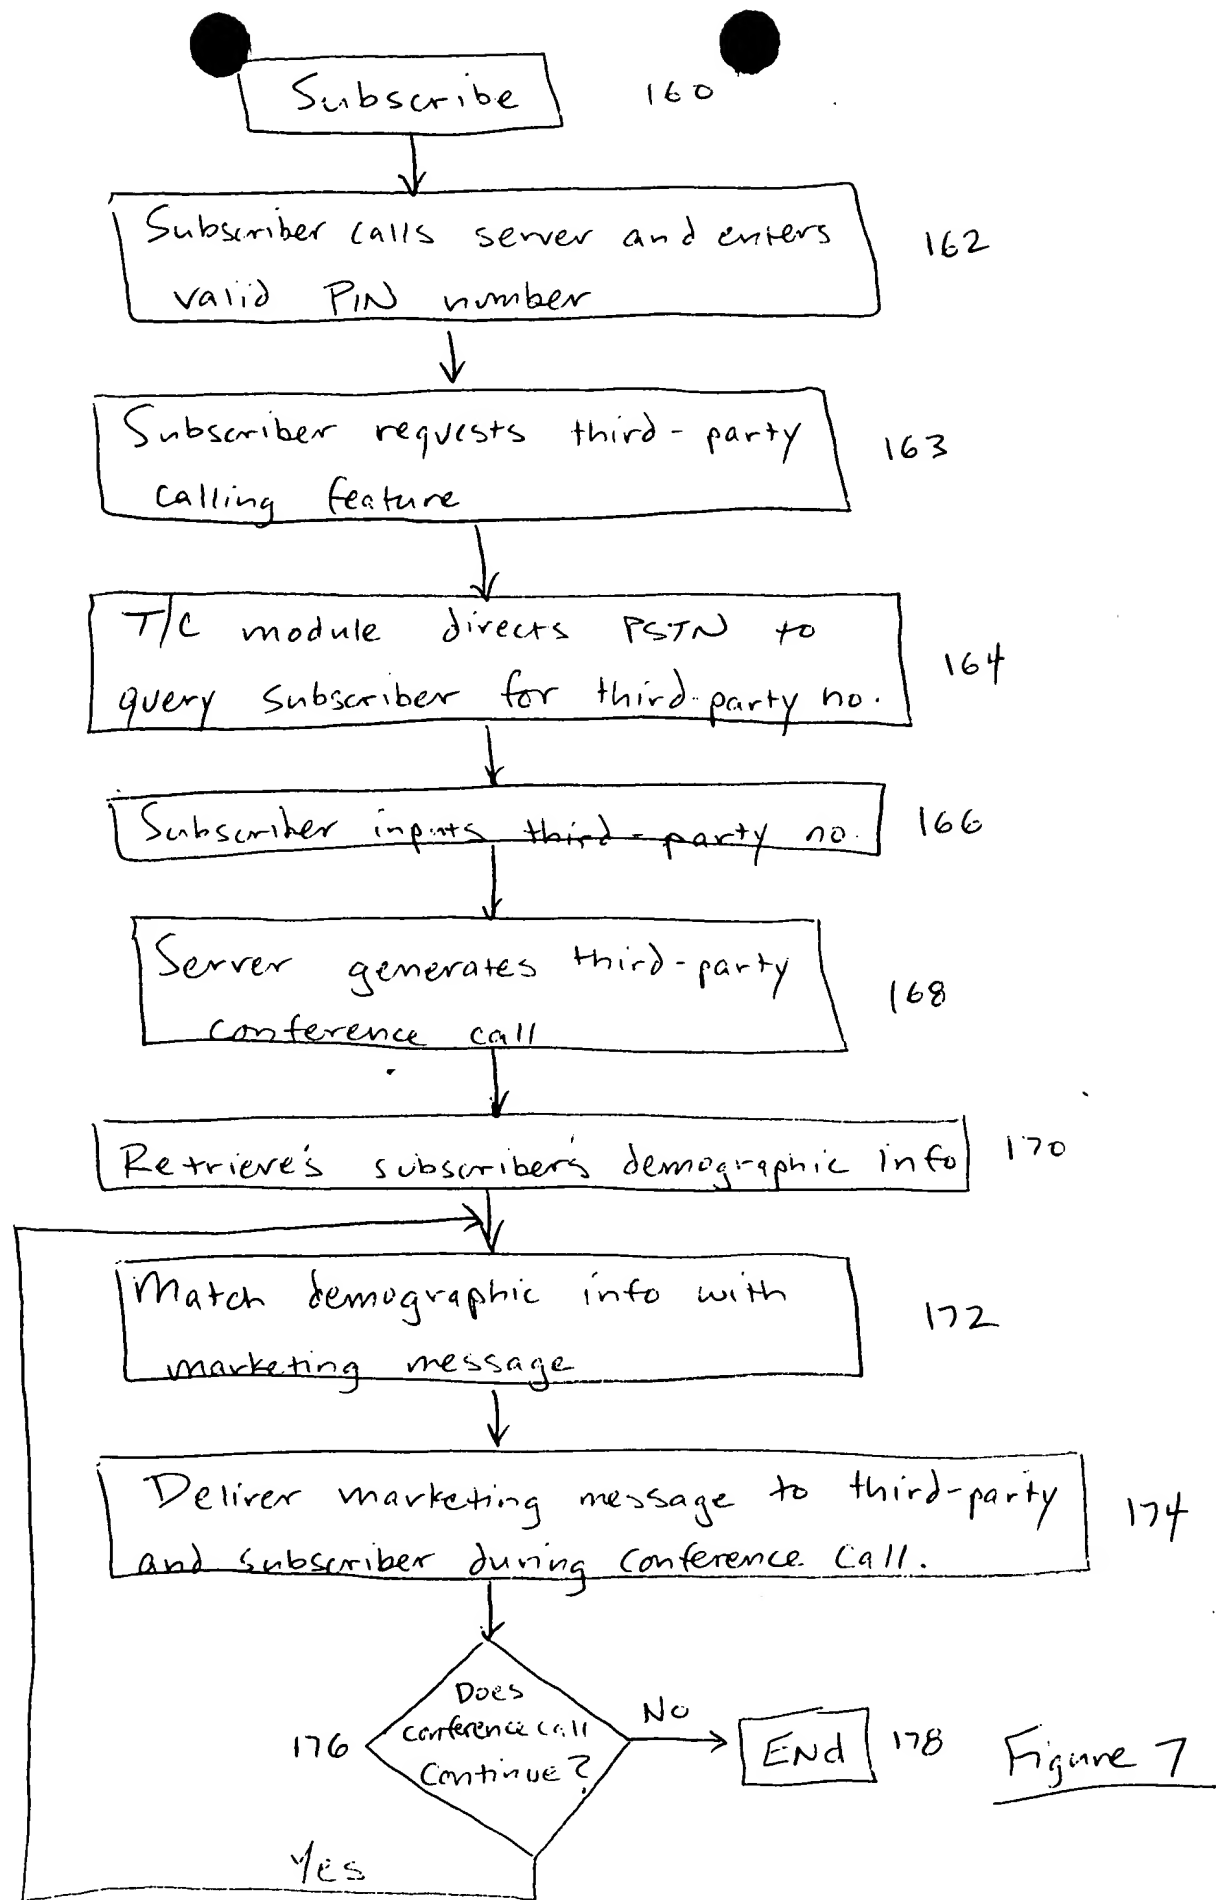 Subscribe
160
Subscriber calls server and enters
valid PIN number
162
Subscriber requests third-party
calling feature
163
T/C module directs PSTN to
query subscriber for third-party no.
164
Subscriber inputs third-party no.
166
Server generates third-party
conference call
168
Retrieve's subscriber's demographic info
170
Match demographic info with
marketing message
172
Deliver marketing message to third-party
and subscriber during conference call.
174
Does
conference call
continue?
176
No
End
178
Yes
Figure 7